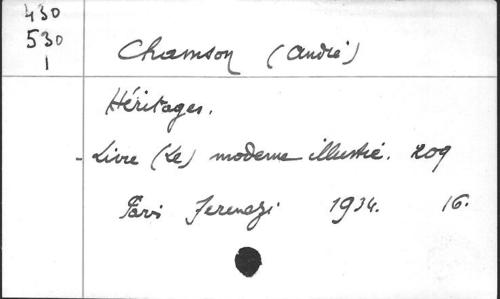 430
530
1
Chamson (André)
Héritages.
- Livre (Le) moderne illustré. 209
Ferenczi 1934. 16.